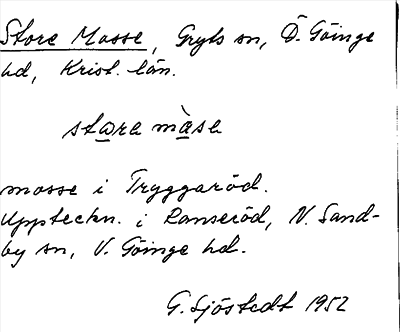 Store Mosse, Gryts sn, Ö. Göinge
hd, Krist. län.
stora màsa
mosse i Tryggaröd.
Uppteckn. i Ranseröd, N. Sand-
by sn, V. Göinge hd.
G. Sjöstedt 1952